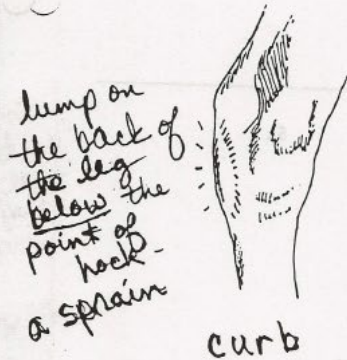 lump on
the back of
the leg
below the
point of
hock-
a sprain
curb